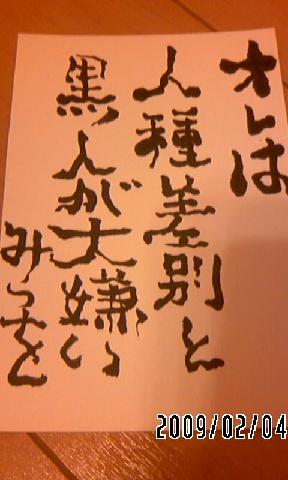 オレは
人種差別と
黒人が大嫌い
みつを
2009/02/04